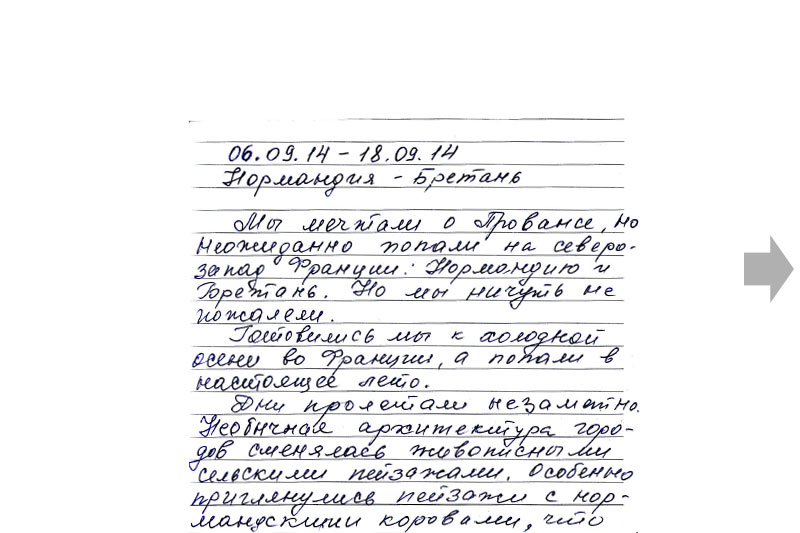 06.09.14 - 18.09.14
Нормандия - Бретань
Мы мечтали о Провансе, но
неожиданно попали на северо-
запад Франции: Нормандию и
Бретань. Но мы ничуть не
пожалели.
Готовились мы к холодной
осени во Франции, а попали в
настоящее лето.
Дни пролетали незаметно.
Необычная архитектура горо-
дов сменялась живописными
сельскими пейзажами. Особенно
приглянулись пейзажи с нор-
мандскими коровами, что